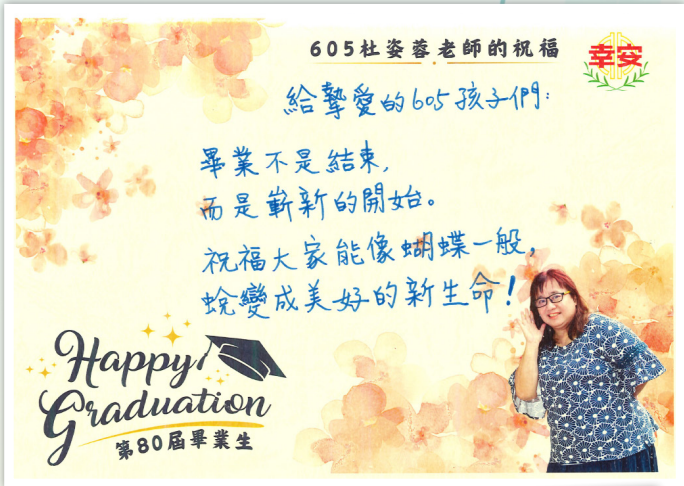 605杜姿蓉老師的祝福
幸安
給摯愛的605孩子們:
畢業不是結束,
而是嶄新的開始。
祝福大家能像蝴蝶一般,
蛻變成美好的新生命!
Happy
Graduation
第80屆畢業生